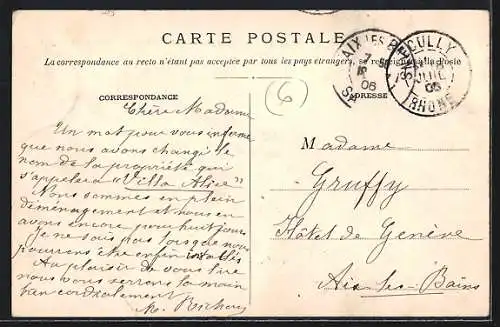 CARTE POSTALE
La correspondance au recto n'étant pas acceptée par tous les pays étrangers, se renseigner à la Poste
AIX LES BAINS
06
ECULLY
JUIL
06
RHONE
6
CORRESPONDANCE
ADRESSE
Chère Madame
Un mot pour vous informer
que nous avons changé le
nom de la propriété qui
s'appelera "Villa Alice"
Nous sommes en plein
déménagement et nous en
avons encore pour huit jours
je ne sais pas lorsque nous
pourrons être enfin installés
Au plaisir de vous lire
nous vous serrons la main
bien cordialement
Madame
Gruffy
Hôtel de Genève
Aix-les-Bains